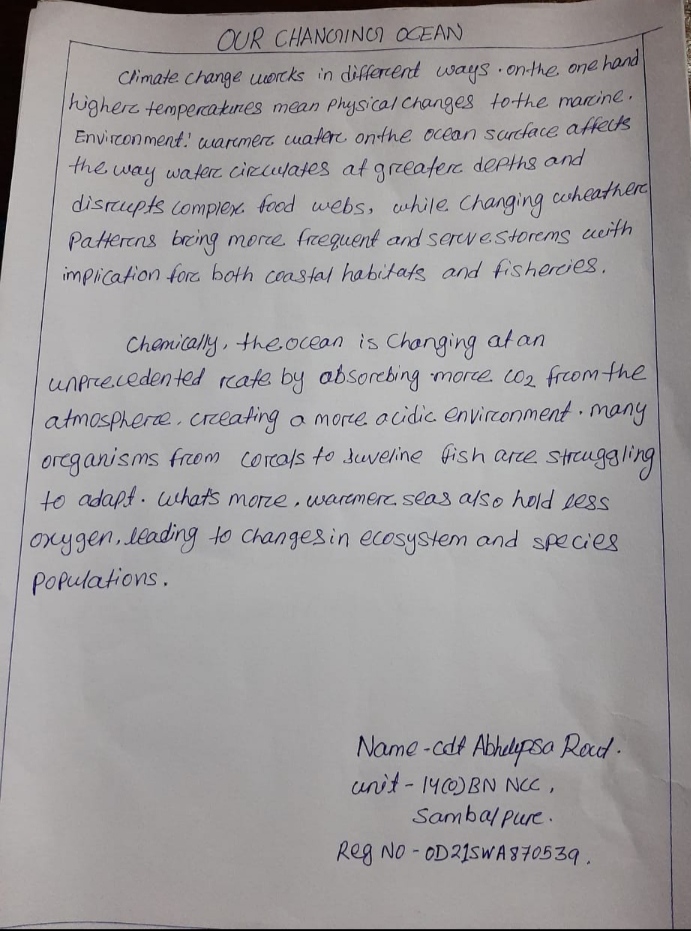 OUR CHANGING OCEAN
Climate change works in different ways. on the one hand
higher temperatures mean Physical changes to the marine.
Environment: warmer water on the ocean surface affects
the way water circulates at greater depths and
disrupts complex food webs, while Changing wheather
Patterns bring more frequent and serve storms with
implication for both coastal habitats and fisheries.
Chemically, the ocean is Changing at an
unprecedented rate by absorbing more CO2 from the
atmosphere. creating a more acidic environment. many
organisms from corals to Juveline fish are struggling
to adapt. what's more, warmer seas also hold less
oxygen, leading to changes in ecosystem and species
populations.
Name - cdt Abhelipsa
unit - 14(O) BN NCC,
Sambalpur.
Reg NO - OD21SWA870539.